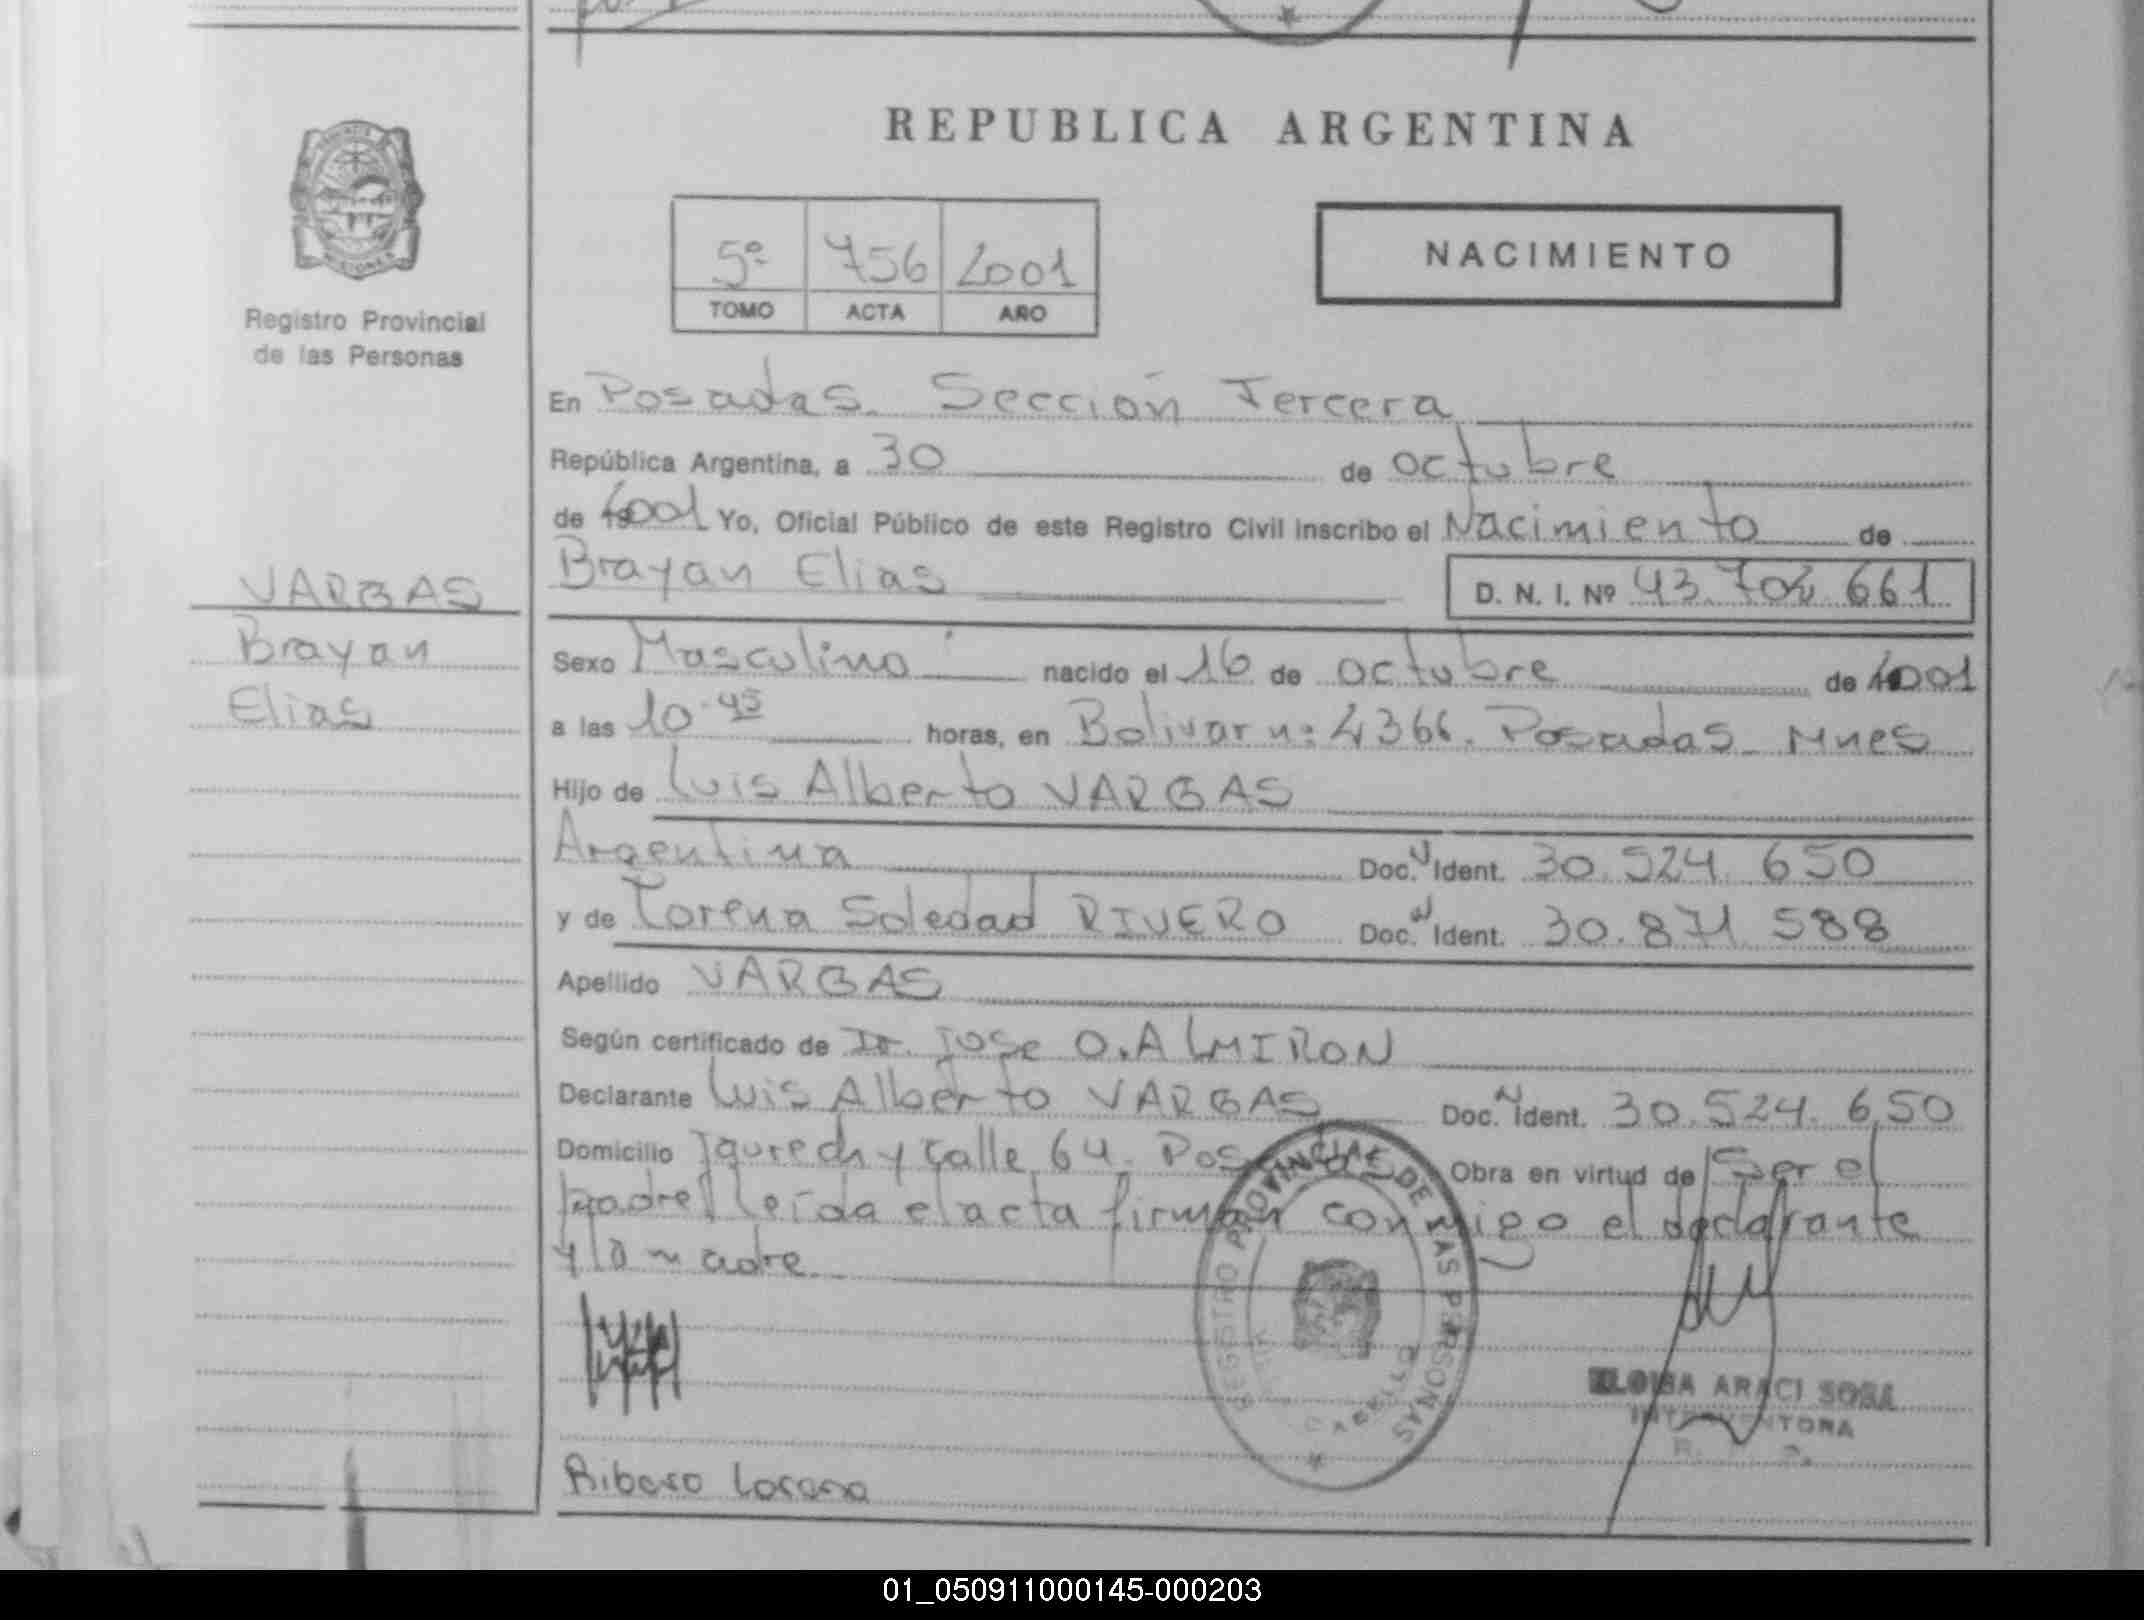 REPUBLICA ARGENTINA
MISIONES
Registro Provincial
de las Personas
5º 756 2001
TOMO ACTA AÑO
NACIMIENTO
VARGAS
Brayan
Elias
En Posadas. Sección Tercera
República Argentina, a 30 de octubre
de 2001 Yo, Oficial Público de este Registro Civil inscribo el Nacimiento de
Brayan Elias D. N. I. Nº 43.702.661
Sexo Masculino nacido el 16 de octubre de 2001
a las 10.45 horas, en Bolivar nº 4366. Posadas. Mnes
Hijo de Luis Alberto VARGAS
Argentina Doc. Ident. 30.524.650
y de Lorena Soledad RIVERO Doc. Ident. 30.871.588
Apellido VARGAS
Según certificado de Dr. Jose O. ALMIRON
Declarante Luis Alberto VARGAS Doc. Ident. 30.524.650
Domicilio y calle 64. Posadas Obra en virtud de Ser el
padre leída el acta firman conmigo el declarante
y la madre
REGISTRO PROVINCIAL DE LAS PERSONAS
ARACI SOSA
INTERVENTORA
Lorena
01_050911000145-000203